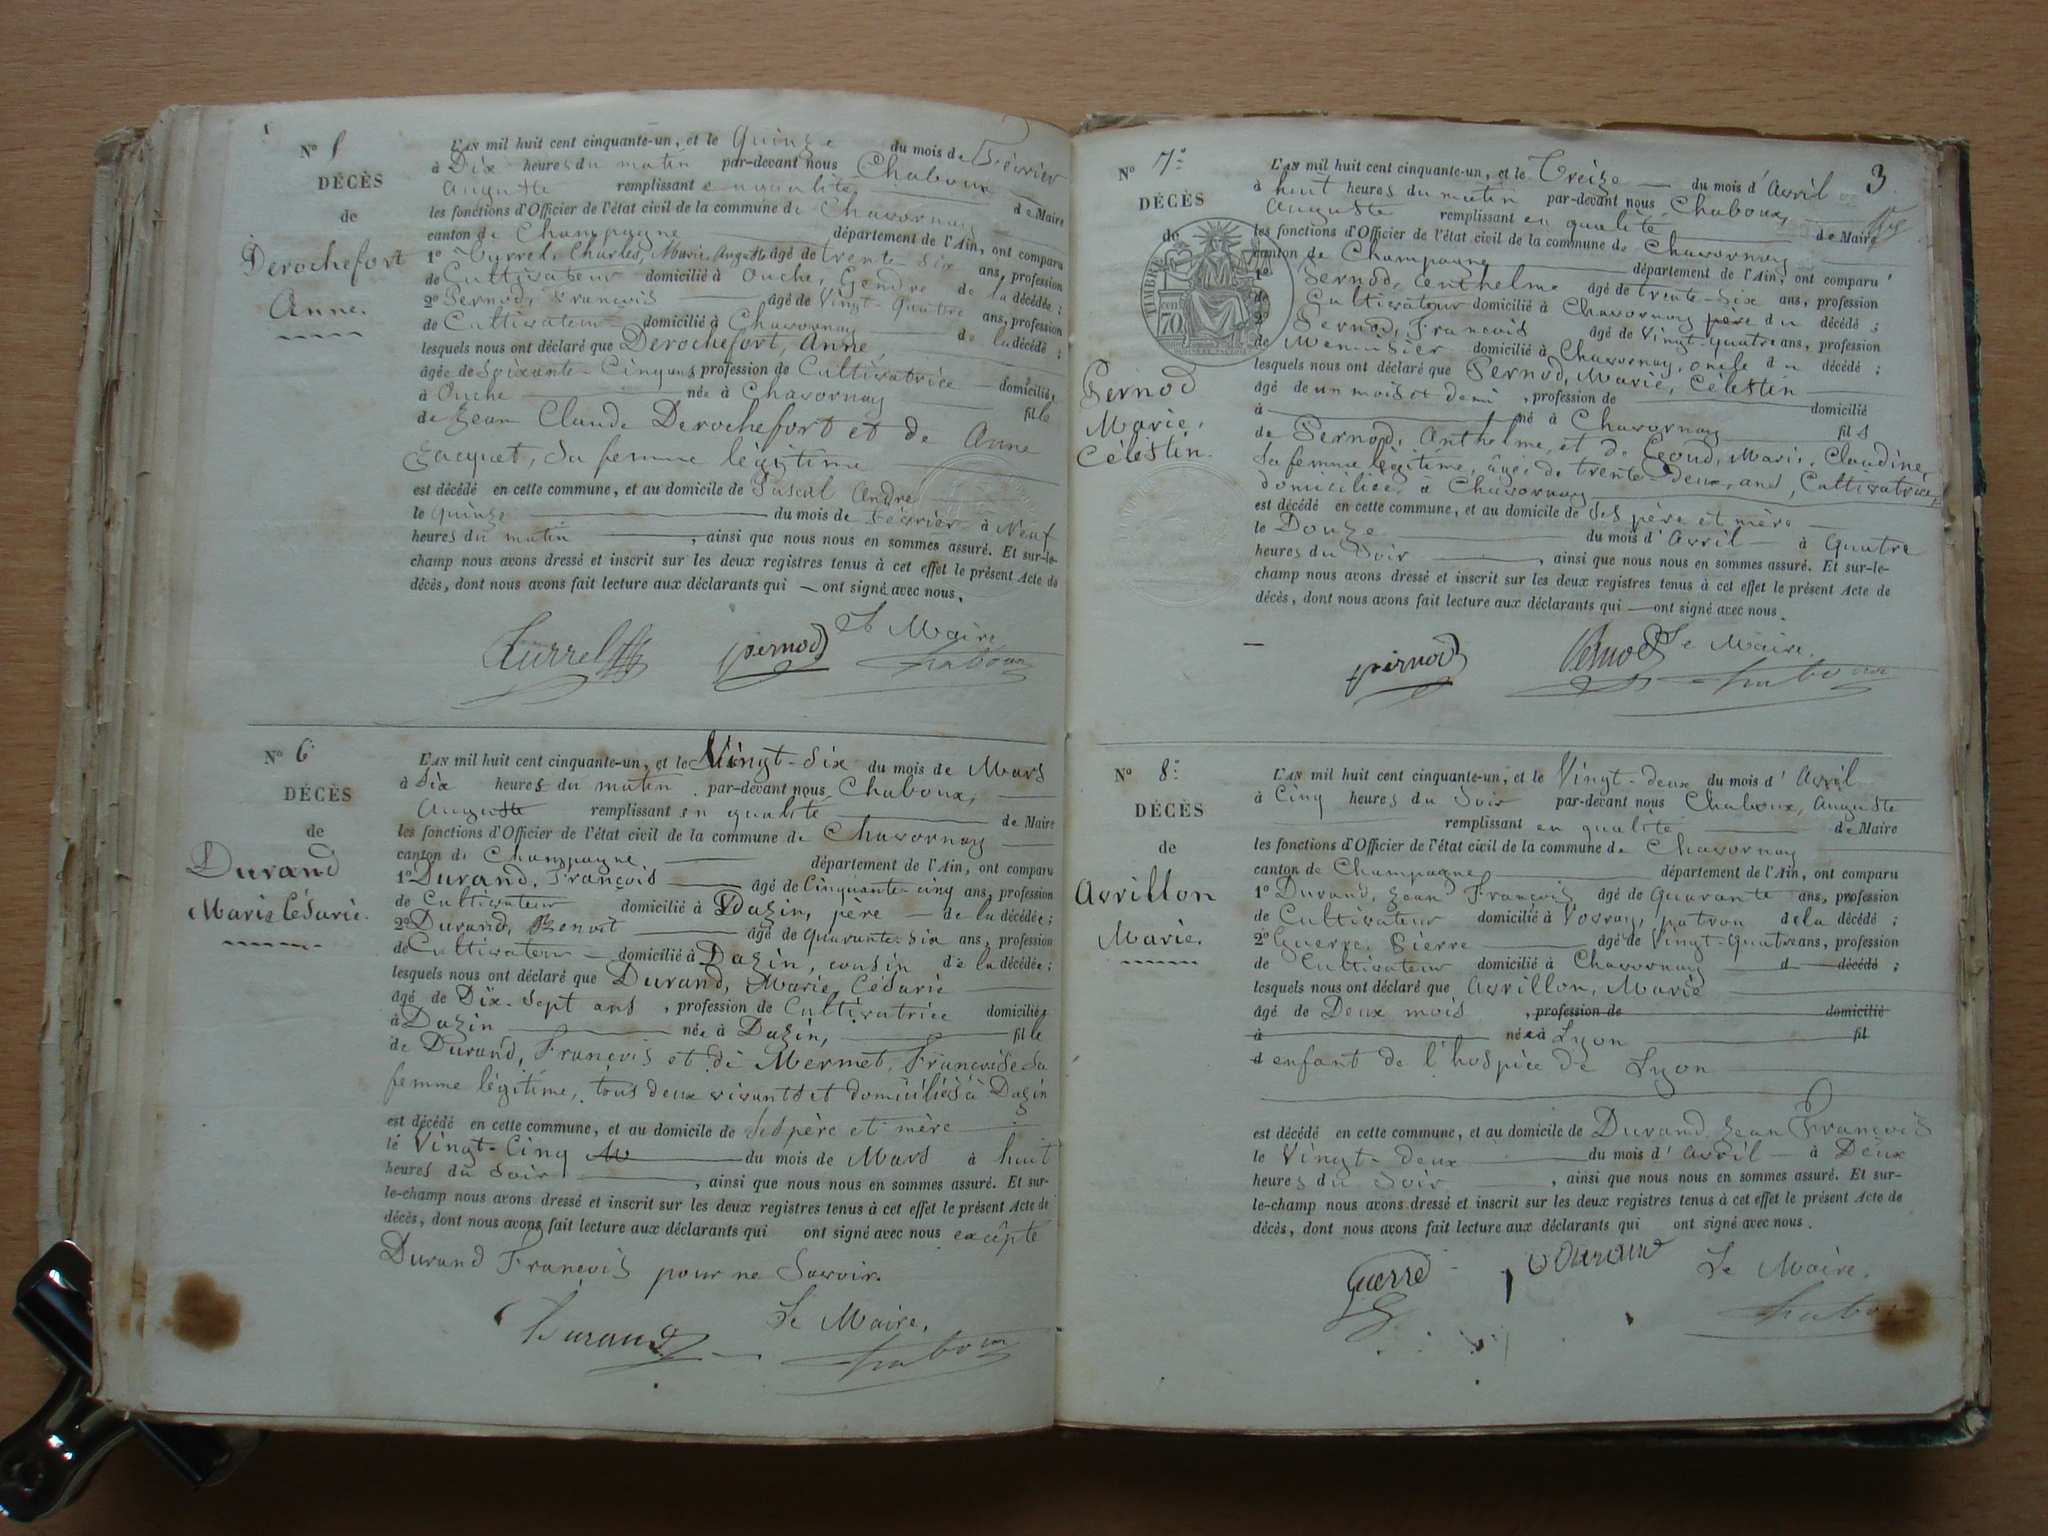 N° 5
DÉCÈS
de
Derochefort
Anne.
L'AN mil huit cent cinquante-un, et le Quinze du mois de Février
à Dix heures du matin par-devant nous Chaboux
Auguste remplissant en qualité de Maire
les fonctions d'Officier de l'état civil de la commune de Chavornay
canton de Champagne département de l'Ain, ont comparu
1° Turrel, Charles, Marie, Auguste âgé de trente-six ans, profession
de Cultivateur domicilié à Ouche, Gendre de la décédée ;
2° Pernod, François âgé de vingt-quatre ans, profession
de Cultivateur domicilié à Chavornay de la décédé ;
lesquels nous ont déclaré que Derochefort, Anne
âgée de Soixante-Cinq ans profession de Cultivatrice domiciliée
à Ouche née à Chavornay fille
de Jean Claude Derochefort et de Anne
Jacquet, sa femme légitime
est décédé en cette commune, et au domicile de Pascal André
le quinze du mois de Février à Neuf
heures du matin , ainsi que nous nous en sommes assuré. Et sur-le-
champ nous avons dressé et inscrit sur les deux registres tenus à cet effet le présent Acte de
décès, dont nous avons fait lecture aux déclarants qui ont signé avec nous.
Turrel pernod Le Maire
Chaboux
N° 6
DÉCÈS
de
Durand
Marie Césarie.
L'AN mil huit cent cinquante-un, et le Vingt-six du mois de Mars
à Six heures du matin par-devant nous Chaboux,
Auguste remplissant en qualité de Maire
les fonctions d'Officier de l'état civil de la commune de Chavornay
canton de Champagne département de l'Ain, ont comparu
1° Durand, François âgé de Cinquante-cinq ans, profession
de Cultivateur domicilié à Dazin, père de la décédée ;
2° Durand, Benoit âgé de quarante-six ans, profession
de Cultivateur domicilié à Dazin, cousin de la décédée ;
lesquels nous ont déclaré que Durand, Marie Césarie
âgé de Dix-Sept ans , profession de Cultivatrice domiciliée
à Dazin née à Dazin, fille
de Durand, François et de Mermet, Françoise sa
femme légitime, tous deux vivants et domiciliés à Dazin
est décédé en cette commune, et au domicile de Ses père et mère
le Vingt-Cinq du mois de Mars à huit
heures du Soir , ainsi que nous nous en sommes assuré. Et sur-
le-champ nous avons dressé et inscrit sur les deux registres tenus à cet effet le présent Acte de
décès, dont nous avons fait lecture aux déclarants qui ont signé avec nous excépté
Durand François pour ne Savoir.
Durand Le Maire,
Chaboux
3
N° 7°
DÉCÈS
de
TIMBRE
70
Pernod
Marie,
Célestin.
L'AN mil huit cent cinquante-un, et le Treize du mois d'Avril
à huit heures du matin par-devant nous Chaboux,
Auguste remplissant en qualité de Maire
les fonctions d'Officier de l'état civil de la commune de Chavornay
canton de Champagne département de l'Ain, ont comparu
1° Pernod, Anthelme âgé de trente-six ans, profession
de Cultivateur domicilié à Chavornay père du décédé ;
2° Pernod, François âgé de vingt-quatre ans, profession
de Menuisier domicilié à Chavornay, oncle du décédé ;
lesquels nous ont déclaré que Pernod, Marie, Célestin
âgé de un mois et demi , profession de domicilié
à né à Chavornay fils
de Pernod, Anthelme, et de Marie, Claudine,
sa femme légitime, âgée de trente Deux, ans, Cultivatrice,
domiciliée, à Chavornay
est décédé en cette commune, et au domicile de Ses père et mère
le Douze du mois d'Avril à Quatre
heures du Soir , ainsi que nous nous en sommes assuré. Et sur-le-
champ nous avons dressé et inscrit sur les deux registres tenus à cet effet le présent Acte de
décès, dont nous avons fait lecture aux déclarants qui ont signé avec nous.
pernod Pernod Le Maire.
Chaboux
N° 8°
DÉCÈS
de
Avrillon
Marie.
L'AN mil huit cent cinquante-un, et le Vingt-deux du mois d'Avril
à Cinq heures du Soir par-devant nous Chaboux, Auguste
remplissant en qualité de Maire
les fonctions d'Officier de l'état civil de la commune de Chavornay
canton de Champagne département de l'Ain, ont comparu
1° Durand, Jean François âgé de Quarante ans, profession
de Cultivateur domicilié à Vovray, patron de la décédé ;
2° Guerre, Pierre âgé de Vingt-Quatre ans, profession
de Cultivateur domicilié à Chavornay d décédé ;
lesquels nous ont déclaré que Avrillon, Marie
âgé de Deux mois , profession de domicilié
à née à Lyon fil
d enfant de l'hospice de Lyon
est décédé en cette commune, et au domicile de Durand Jean François
le Vingt-deux du mois d'Avril à Deux
heures du Soir , ainsi que nous nous en sommes assuré. Et sur-
le-champ nous avons dressé et inscrit sur les deux registres tenus à cet effet le présent Acte de
décès, dont nous avons fait lecture aux déclarants qui ont signé avec nous.
Guerre Durand Le Maire,
Chaboux